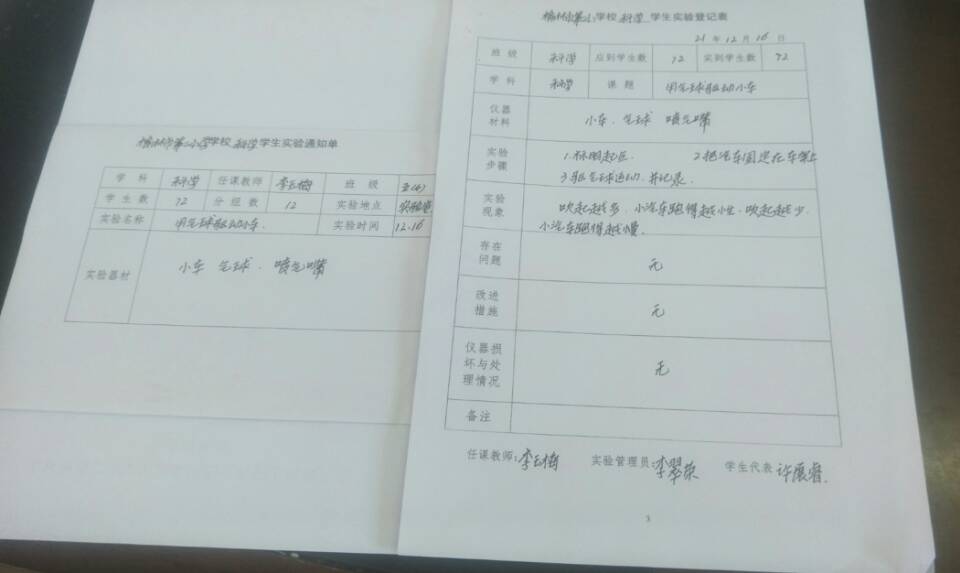 学校科学学生实验通知单
学科 科学 任课教师 李玉梅 班级 五(6)
学生数 72 分组数 12 实验地点 实验室
实验名称 用气球驱动小车 实验时间 12.16
实验器材 小车 气球 . 喷气嘴
学校科学学生实验登记表
21年12月16日
班级 科学 应到学生数 72 实到学生数 72
学科 科学 课题 用气球驱动小车
仪器材料 小车. 气球 喷气嘴
实验步骤 1.标明起点. 2把汽车固定在车架上
3.气球运动.并记录.
实验现象 吹起越多,小汽车跑得越,吹起越少.
小汽车跑得越慢.
存在问题 无
改进措施 无
仪器损坏与处理情况 无
备注
任课教师:李玉梅 实验管理员:李翠荣 学生代表:许展睿.
3